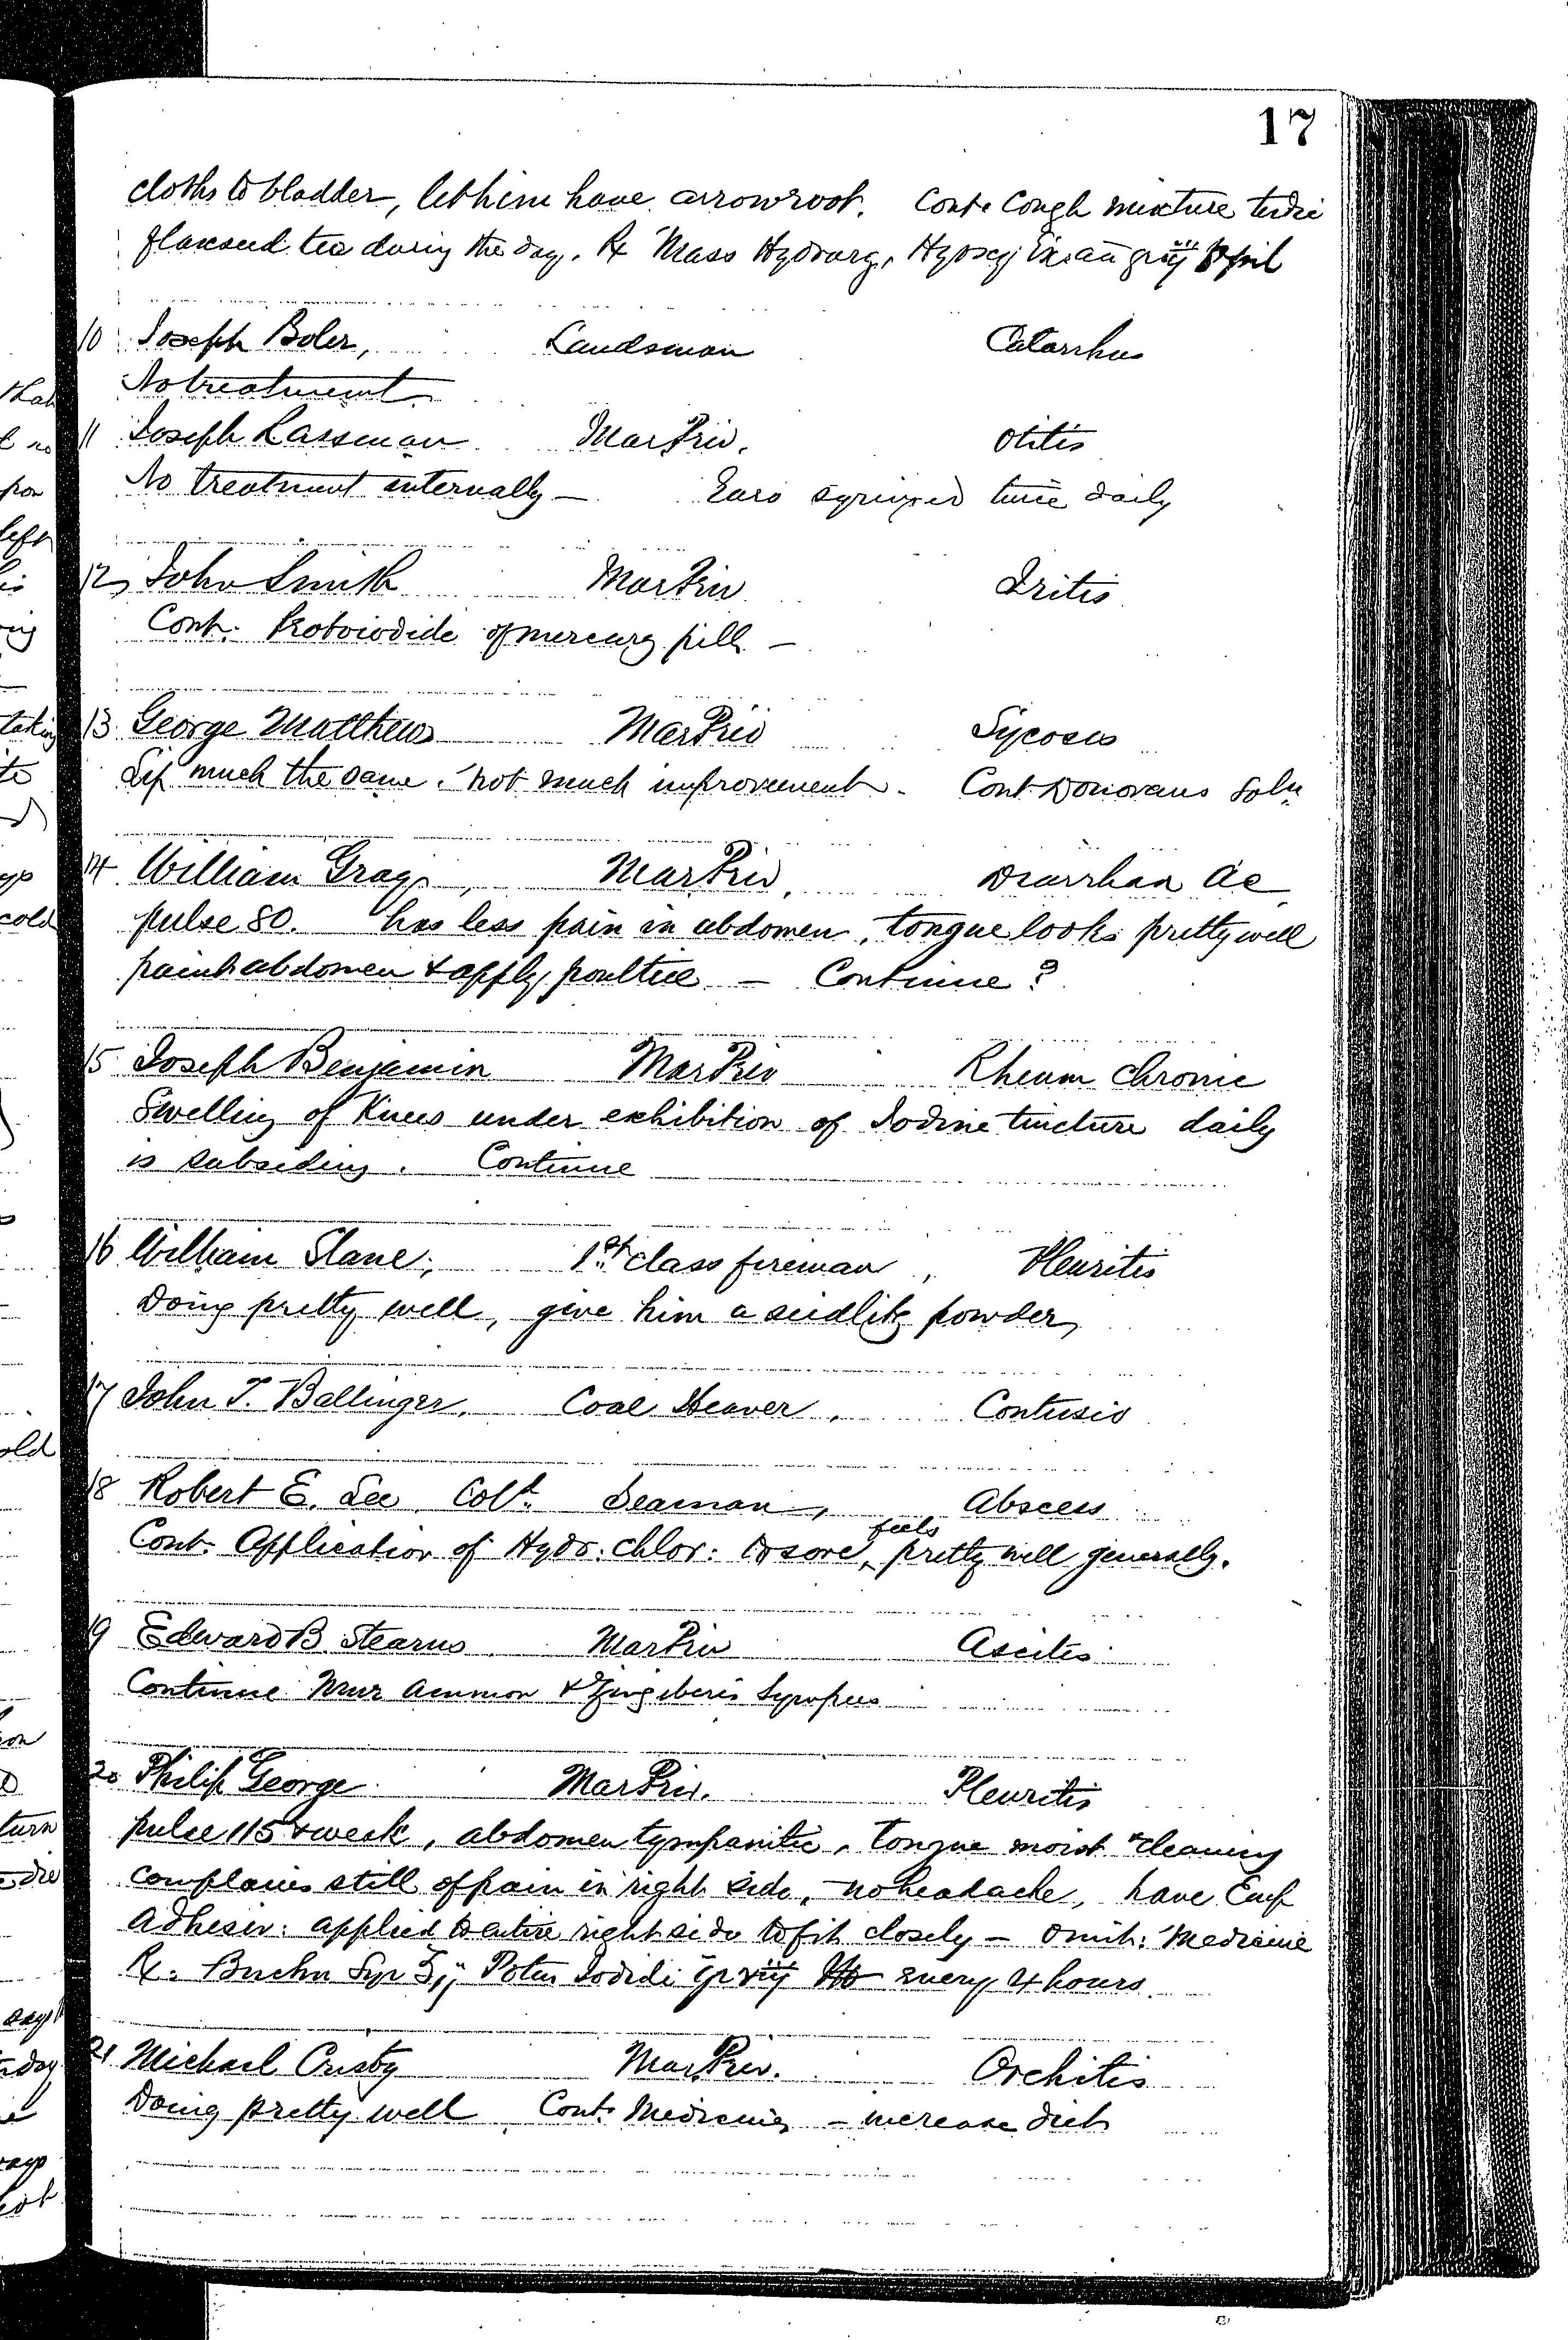 17
cloths to bladder, let him have arrowroot. Cont. Cough mixture terdie
flaxseed tea during the day. ℞ Mass Hydrarg, Hyoscy Ex. aa gr iij pil
10 Joseph Boler, Landsman Catarrhus
No treatment
11 Joseph Lassman Mar Priv. Otitis
No treatment internally — Ears syringed twice daily
12 John Smith Mar Priv Iritis
Cont. Protoiodide of mercury pill —
13 George Matthews Mar Priv Sycosis
Lip much the same. not much improvement. Cont Donovans Soln
14 William Gray, Mar Priv, Diarrhœa Ac
pulse 80. has less pain in abdomen, tongue looks pretty well
paint abdomen & apply poultice — Continue ?
15 Joseph Benjamin Mar Priv Rheum Chronic
Swelling of Knees under exhibition of Iodine tincture daily
is subsiding. Continue
16 William Slane, 1st class fireman, Pleuritis
Doing pretty well, give him a seidlitz powder,
17 John T. Ballinger, Coal Heaver, Contusio
18 Robert E. Lee Cold. Seaman, Abscess
Cont. Application of Hydr. chlor: to sore, feels pretty well generally.
19 Edward B. Stearns Mar Priv Ascites
Continue Mur Ammon & Zingiberis Syrupus
20 Philip George Mar Priv. Pleuritis
pulse 115 & weak, abdomen tympanitic, tongue moist & cleaning
complains still of pain in right side, no headache, have Emp
Adhesiv: applied to entire right side to fit closely — Omit: Medicine
℞. Buchu Syr ℥ij Potas Iodidi gr viij every 4 hours
21 Michael Crusby Mar Priv. Orchitis
Doing pretty well Cont. Medicines — increase diet